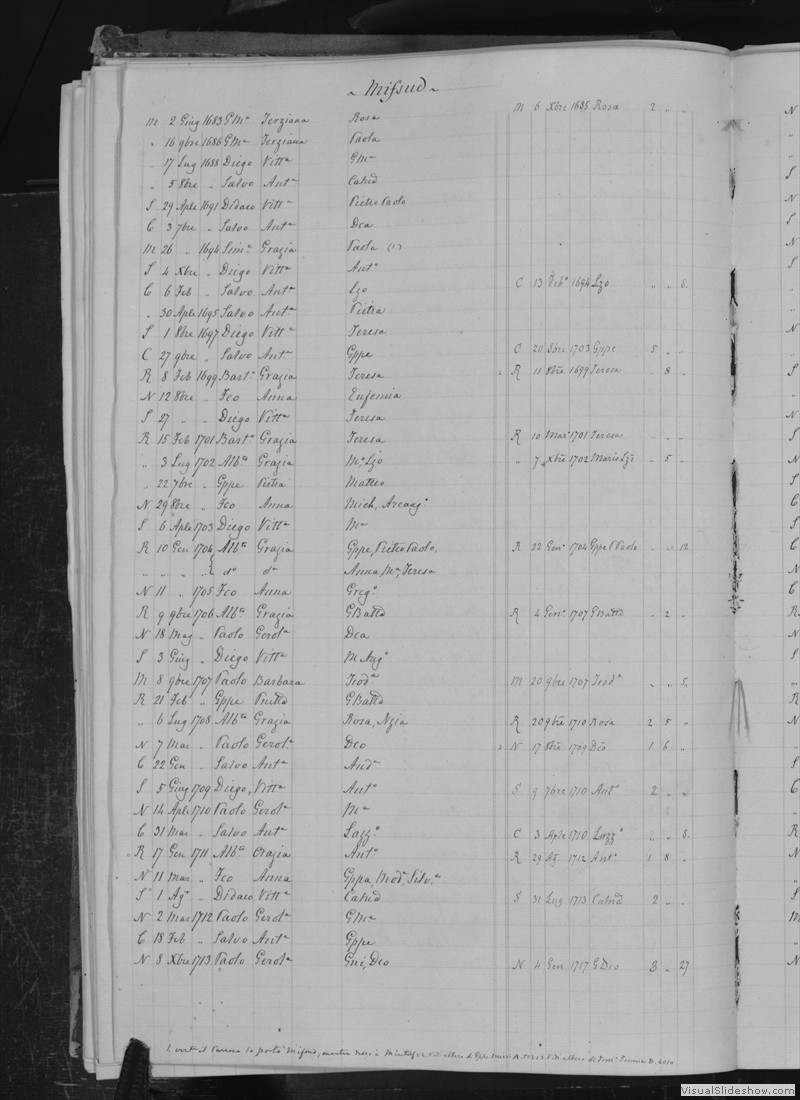 ~ Mifsud ~
M 2 Giug 1683 GMa Terziana Rosa M 6 Xbre 1685 Rosa 2 " "
" 16 9bre 1686 GMa Terziana Paola
" 17 Lug 1688 Diego Vitta GMa
" 5 8bre " Salvo Anta Catnd
S 29 Aple 1691 Didaco Vitta Pietro Paolo
C 3 7bre " Salvo Anta Dea
M 26 " 1694 Sima Grazia Paola (1)
S 4 Xbre " Diego Vitta Anto
C 6 Feb " Salvo Anta Lzo C 13 Febo 1694 Lzo " " 8.
" 30 Aple 1695 Salvo Anta Pietra
S 1 8bre 1697 Diego Vitta Teresa
C 27 9bre " Salvo Anta Gppe C 20 1703 Gppe 5 " "
R 8 Feb 1699 Barto Grazia Teresa R 11 8bre 1699 Teresa " 8 "
N 12 8bre " Fco Anna Eufemia
S 27 " " Diego Vitta Teresa
R 15 Feb 1701 Barto Grazia Teresa R 10 Mar 1701 Teresa " " "
" 3 Lug 1702 Alba Grazia Mo Lzo " 7 Xbre 1702 Mario Lzo " 5 "
" 22 7bre " Gppe Pietra Matteo
N 29 8bre " Fco Anna Mich, Arcango
S 6 Aple 1703 Diego Vitta Ma
R 10 Gen 1704 Alba Grazia Gppe, Pietro Paolo, R 22 Geno 1704 Gppe P Paolo " " 12
" " " " { do do Anna Ma, Teresa
N 11 " 1705 Fco Anna Grego
R 9 9bre 1706 Alba Grazia GBatta R 4 Geno 1707 GBatta " 2 "
N 18 Mag " Paolo Gerola Dea
S 3 Giug " Diego Vitta M Ango
M 8 9bre 1707 Paolo Barbara Teoda M 20 9bre 1707 Teoda " " 5,
R 21 Feb " Gppe GBatta
" 6 Lug 1708 Alba Grazia Rosa, Nzia R 20 9bre 1710 Rosa 2 5 "
N 7 Mar " Paolo Gerola Deo N 17 8bre 1709 Deo 1 6 "
C 22 Gen " Salvo Anta Anda
S 5 Giug 1709 Diego, Vitta Anto S 9 7bre 1710 Anto 2 " "
N 14 Aple 1710 Paolo Gerola Ma
C 31 Mar " Salvo Anta Lazzo C 3 Aple 1710 Lazzo " " 8.
R 17 Gen 1711 Alba Grazia Anto R 29 Ag. 1712 Anto 1 8 "
N 11 Mar " Fco Anna Gppa, Moda, Silva
S 1 Ago " Didaco Vitta Catnd S 31 Lug 1713 Catnd 2 " "
N 2 Mar 1712 Paolo Gerola GMa
C 18 Feb " Salvo Anta Gppe
N 8 Xbre 1713 Paolo Gerola Gni, Deo N 4 Gen 1717 G Deo 3 " 27
1. il lo porta Mifsud, mentre
VisualSlideshow.com